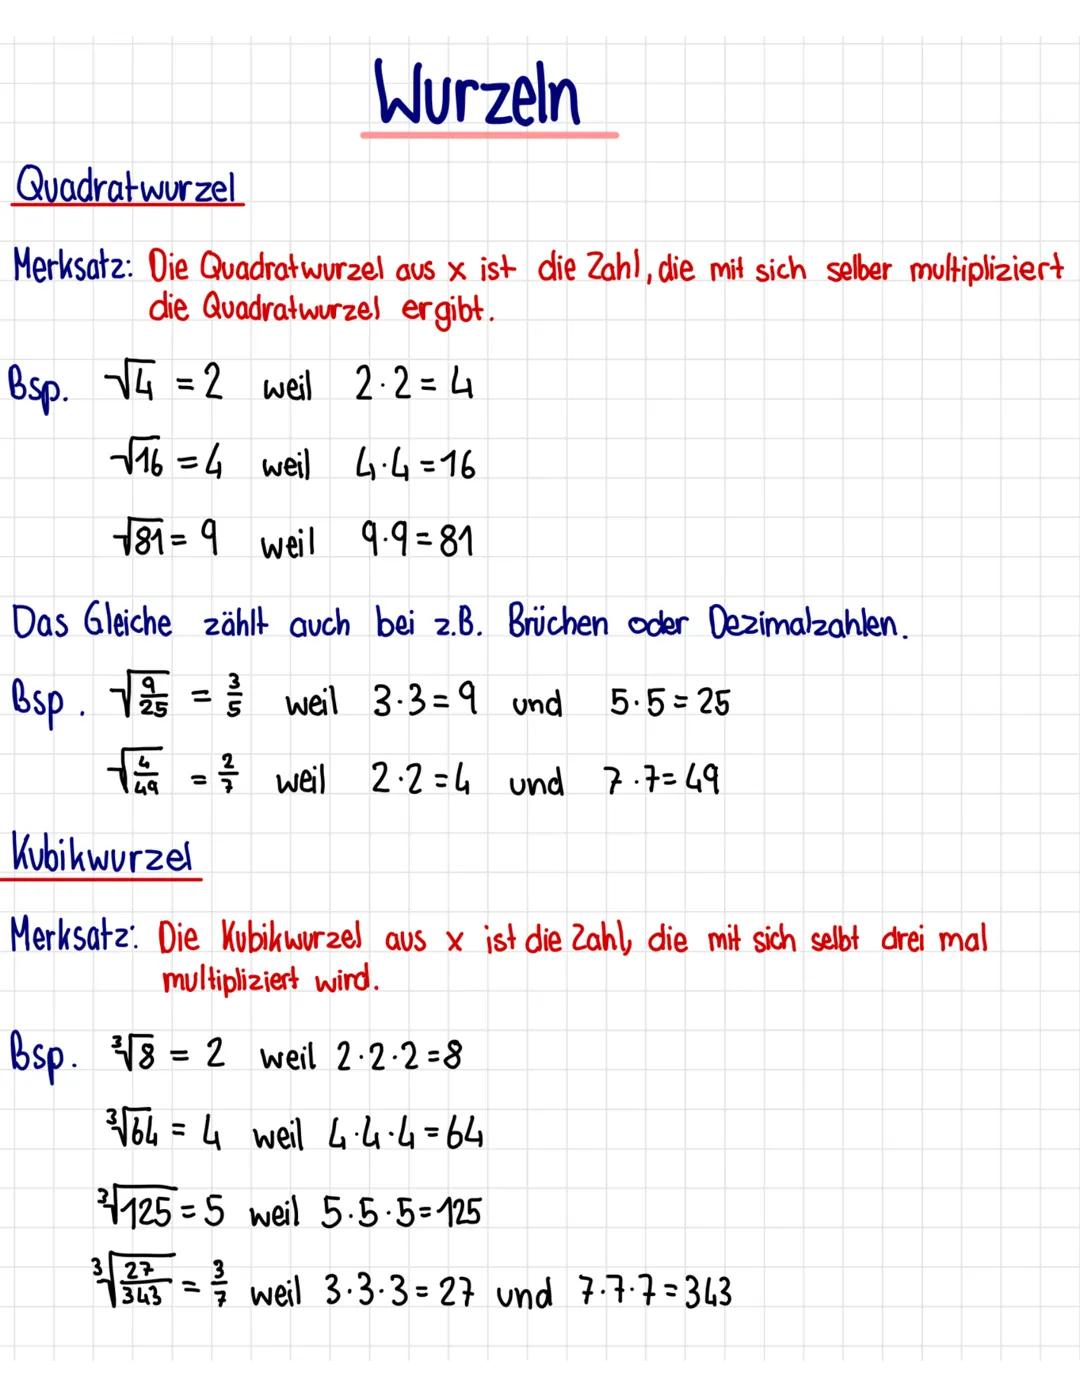 Wurzeln
Quadratwurzel
Merksatz: Die Quadratwurzel aus x ist die Zahl, die mit sich selber multipliziert
die Quadratwurzel ergibt.
Bsp. √4 = 2 weil 2·2 = 4
√16 = 4 weil 4·4 = 16
√81 = 9 weil 9·9 = 81
Das Gleiche zählt auch bei z.B. Brüchen oder Dezimalzahlen.
Bsp. √(9/25) = 3/5 weil 3·3 = 9 und 5·5 = 25
√(4/49) = 2/7 weil 2·2 = 4 und 7·7 = 49
Kubikwurzel
Merksatz: Die Kubikwurzel aus x ist die Zahl, die mit sich selbt drei mal
multipliziert wird.
Bsp. ³√8 = 2 weil 2·2·2 = 8
³√64 = 4 weil 4·4·4 = 64
³√125 = 5 weil 5·5·5 = 125
³√(27/343) = 3/7 weil 3·3·3 = 27 und 7·7·7 = 343